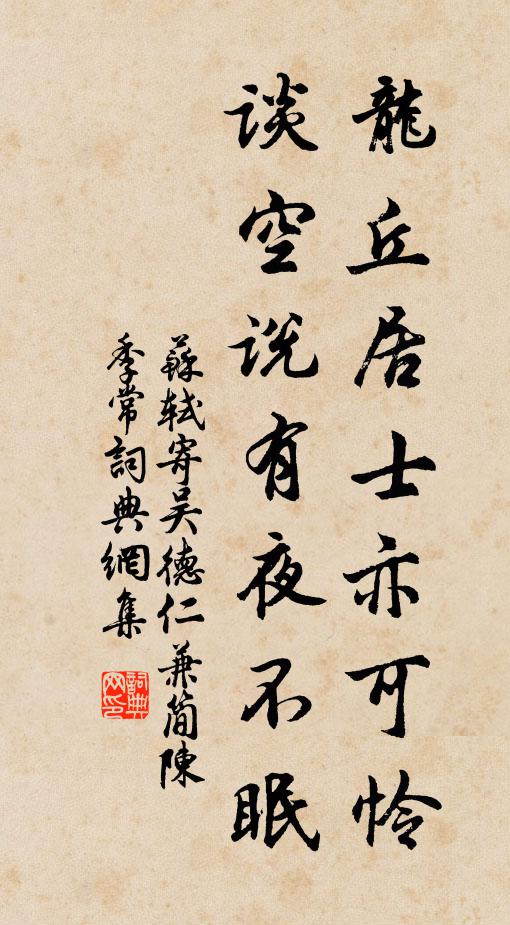 龍丘居士亦可憐
談空説有夜不眠
蘇軾寄吴德仁兼简陳
季常詞典網集
詞典网印